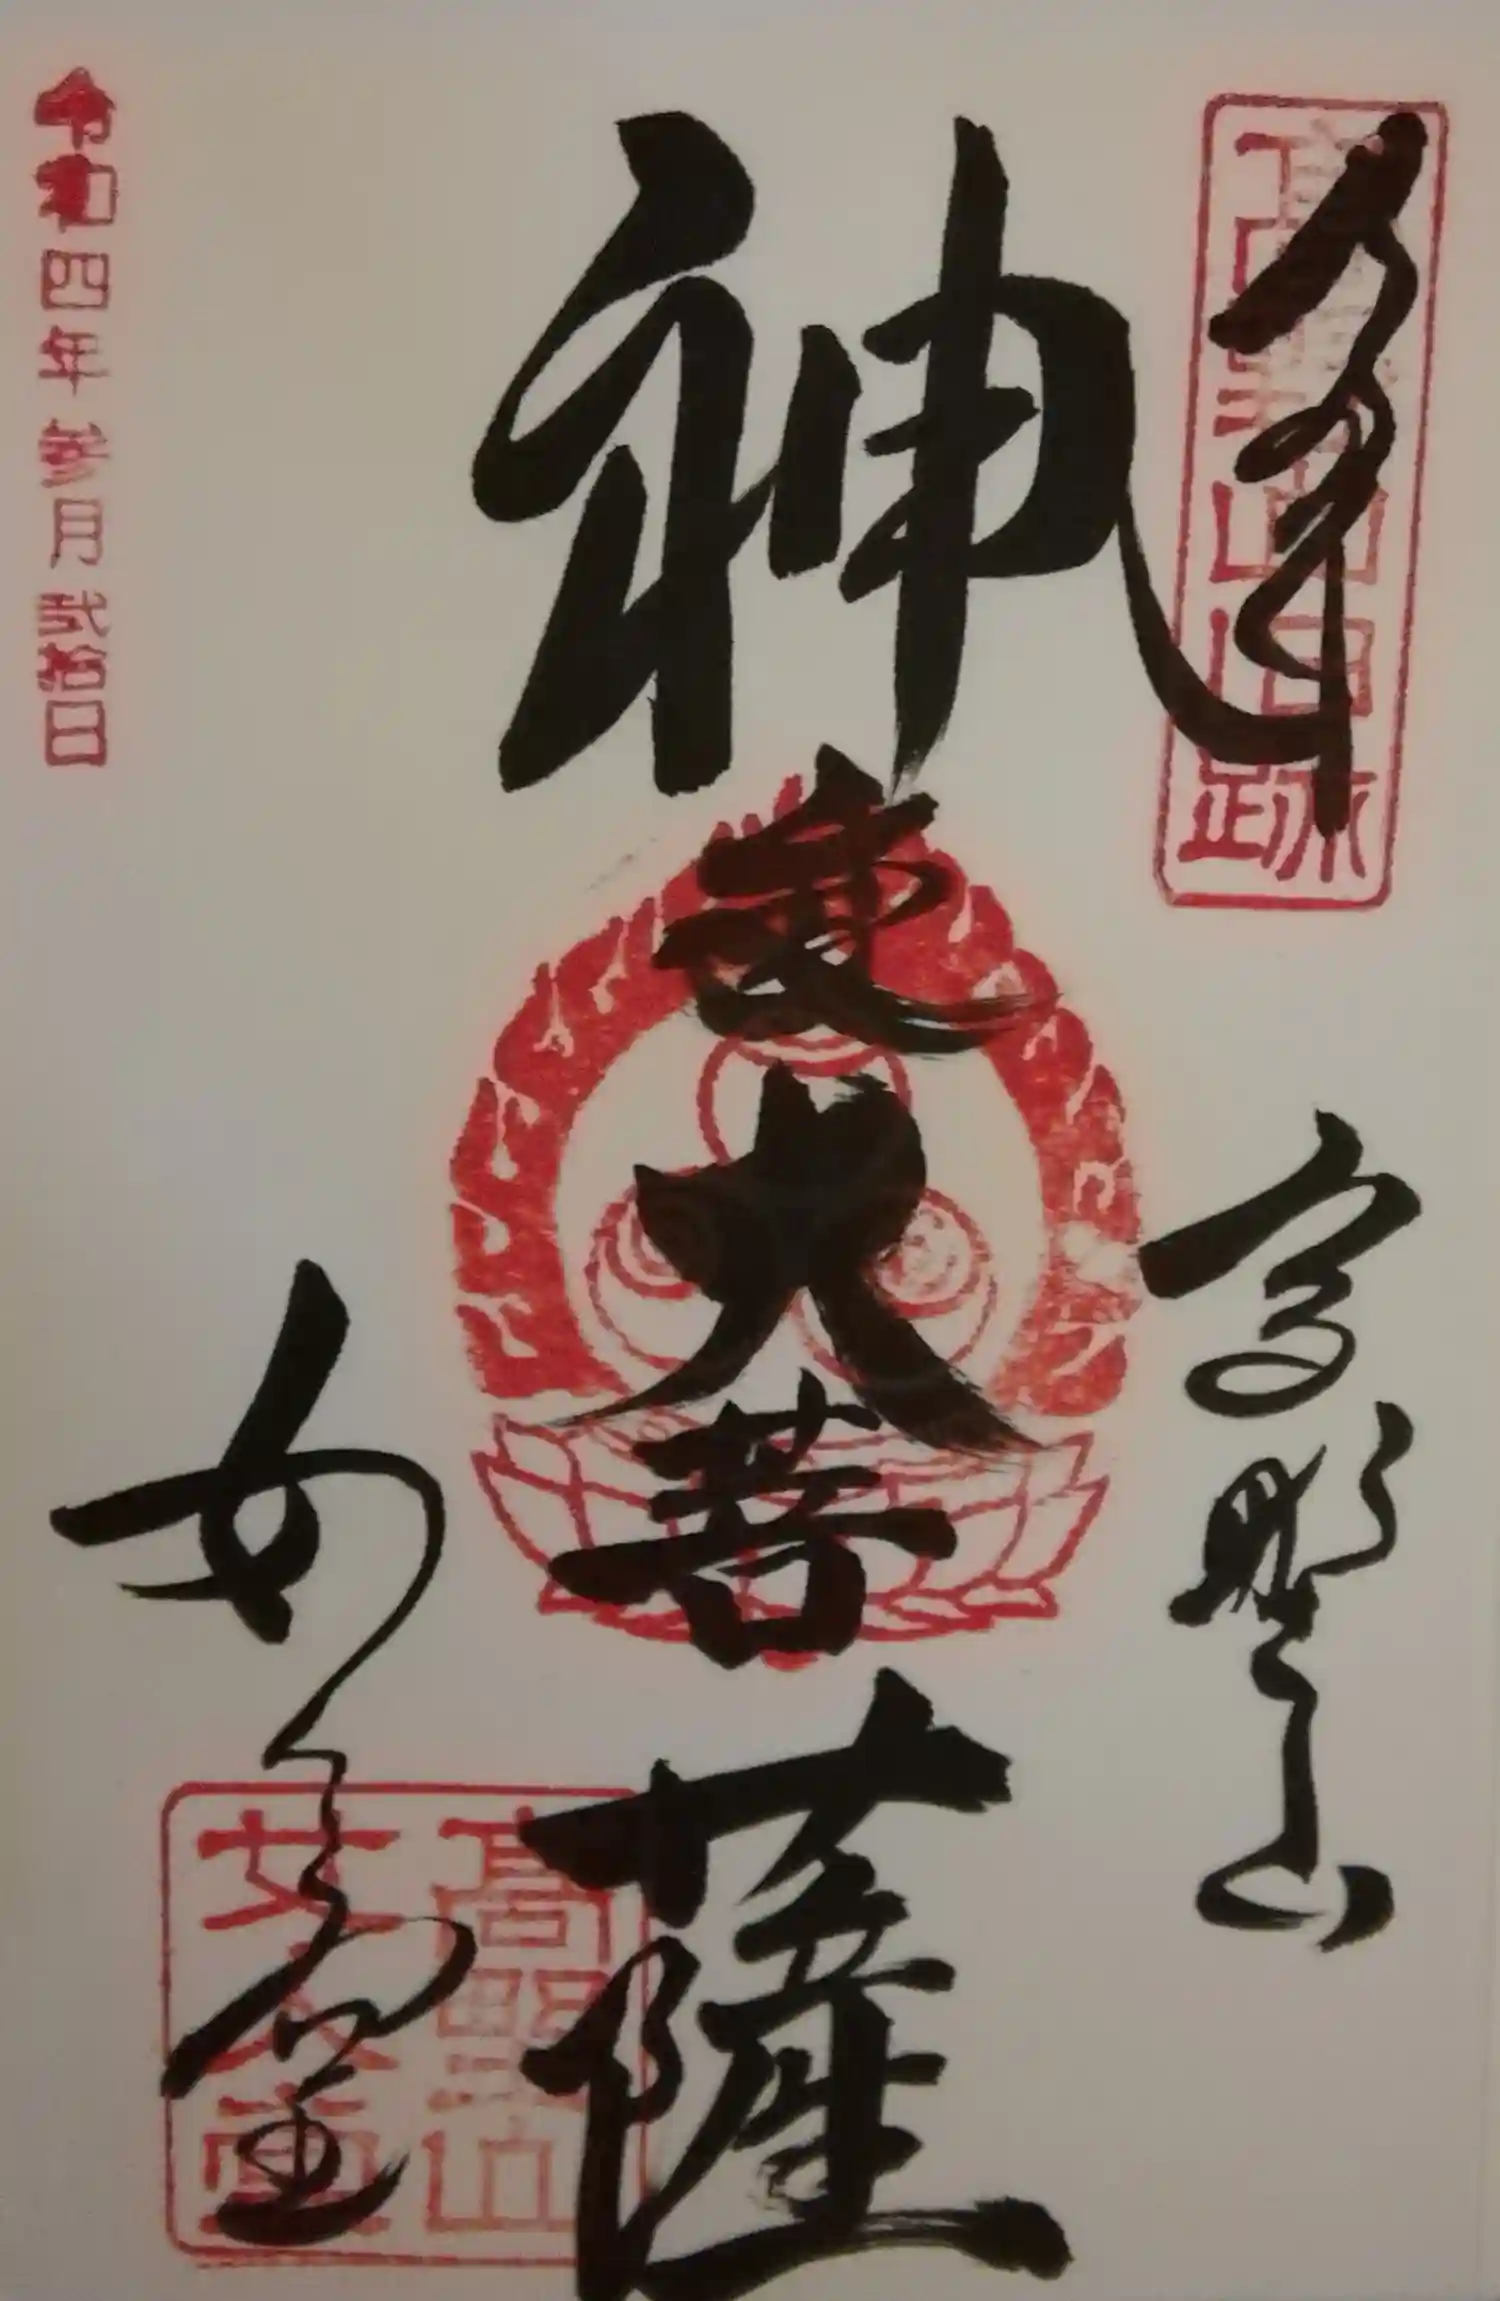 奉拝
高野山旧跡
高野山
神変大菩薩
女人堂
高野山
女人堂
令和四年参月弐拾日